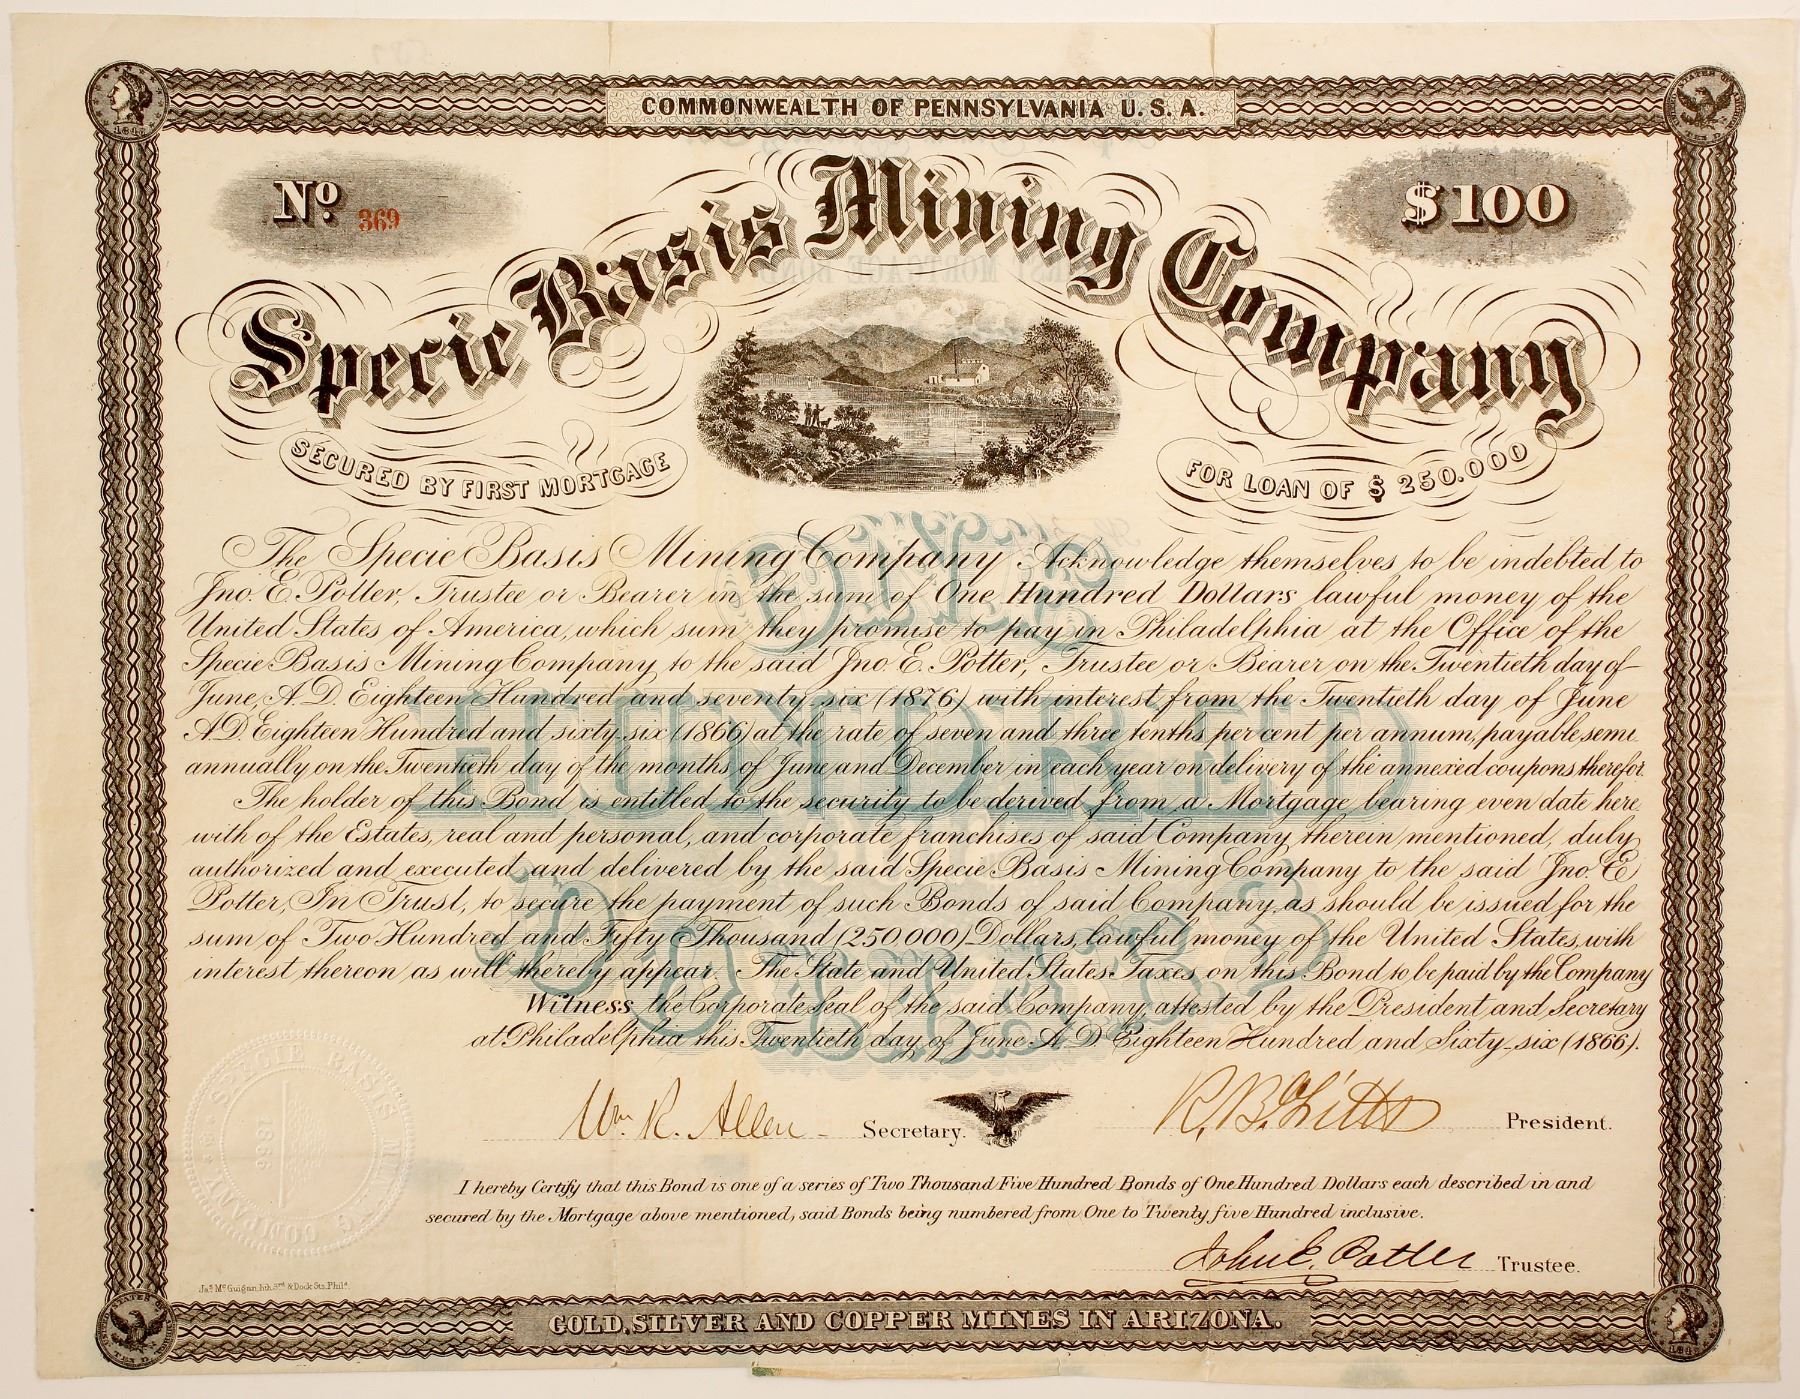 COMMONWEALTH OF PENNSYLVANIA U.S.A.
No. 369
$100
Specie Basis Mining Company
SECURED BY FIRST MORTGAGE
FOR LOAN OF $ 250.000
The Specie Basis Mining Company Acknowledge themselves to be indebted to
Jno. E. Potter, Trustee or Bearer in the sum of One Hundred Dollars lawful money of the
United States of America, which sum they promise to pay in Philadelphia at the Office of the
Specie Basis Mining Company to the said Jno. E. Potter, Trustee or Bearer on the Twentieth day of
June, A.D. Eighteen Hundred and seventy six (1876) with interest from the Twentieth day of June
A.D. Eighteen Hundred and sixty six (1866) at the rate of seven and three tenths per cent per annum, payable semi
annually on the Twentieth day of the months of June and December in each year on delivery of the annexed coupons therefor.
The holder of this Bond is entitled to the security to be derived from a Mortgage bearing even date here
with of the Estates, real and personal, and corporate franchises of said Company therein mentioned, duly
authorized and executed and delivered by the said Specie Basis Mining Company to the said Jno. E.
Potter, In Trust, to secure the payment of such Bonds of said Company, as should be issued for the
sum of Two Hundred and Fifty Thousand (250.000) Dollars, lawful money of the United States, with
interest thereon as will thereby appear. The State and United States Taxes on this Bond to be paid by the Company
Witness the Corporate Seal of the said Company, attested by the President and Secretary
at Philadelphia this Twentieth day of June A.D. Eighteen Hundred and Sixty-six (1866).
ONE
HUNDRED
DOLLARS
Wm. R. Allen Secretary.
President.
SPECIE BASIS MINING COMPANY
1866
I hereby Certify that this Bond is one of a series of Two Thousand Five Hundred Bonds of One Hundred Dollars each described in and
secured by the Mortgage above mentioned, said Bonds being numbered from One to Twenty five Hundred inclusive.
John E. Potter Trustee.
Jas. McGuigan, lith. 3rd & Dock Sts. Phila.
GOLD, SILVER AND COPPER MINES IN ARIZONA.